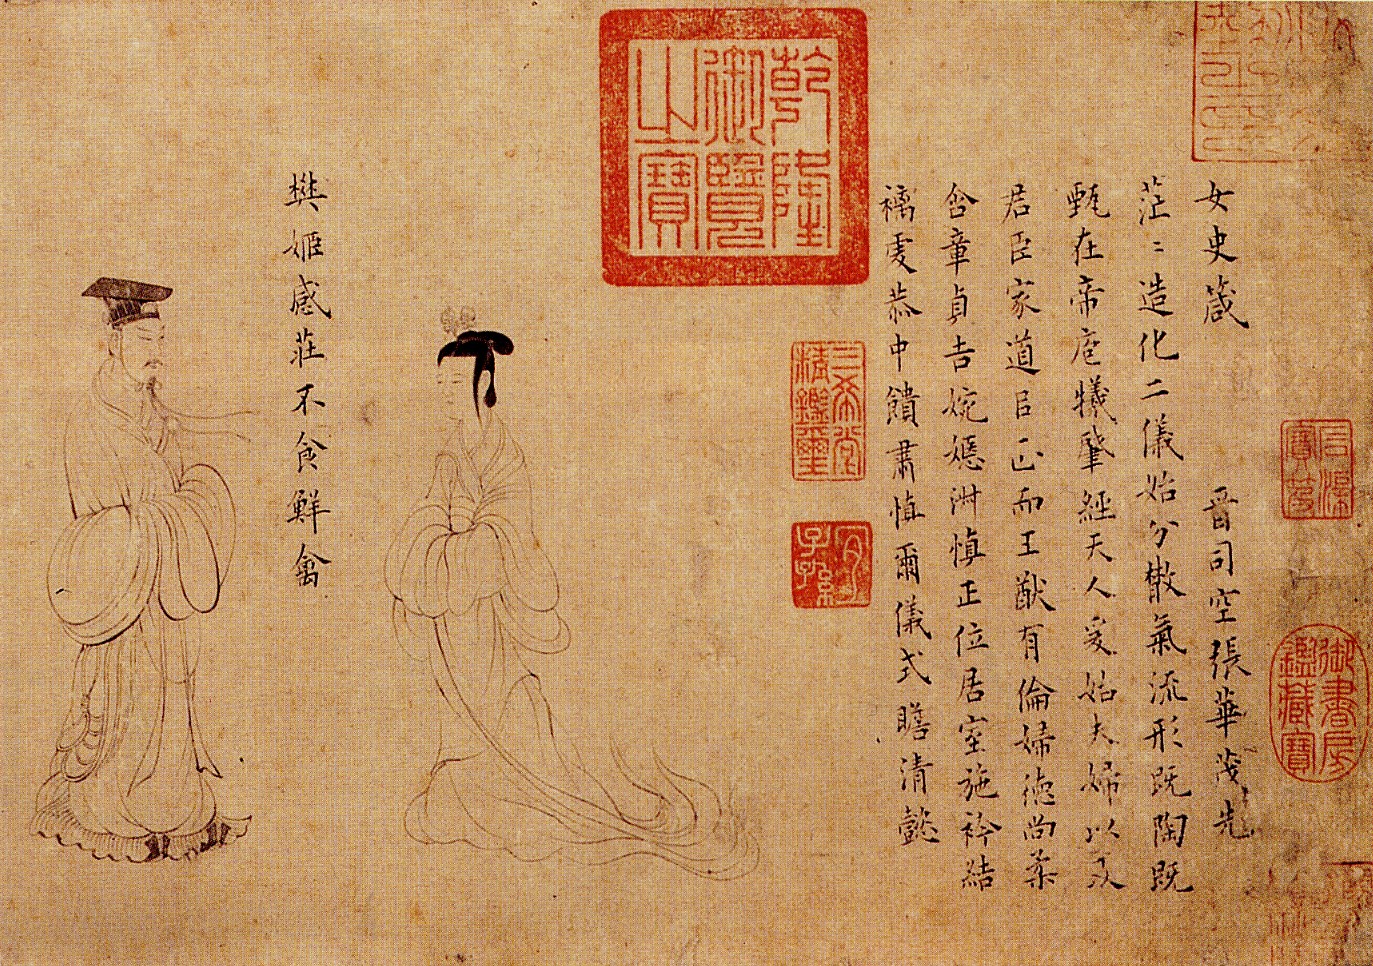 女史箴 晉司空張華茂先
茫〻造化二儀始分散氣流形既陶既
甄在帝庖犧肇經天人爰始夫婦以及
君臣家道㠯正而王猷有倫婦德尚柔
含章貞吉婉嫕淑慎正位居室施衿結
褵虔恭中饋肅慎爾儀式瞻清懿
樊姬感莊不食鮮禽
石渠寶笈
御書房鑑藏寶
乾隆御覽之寶
三希堂精鑑璽
宜子孫